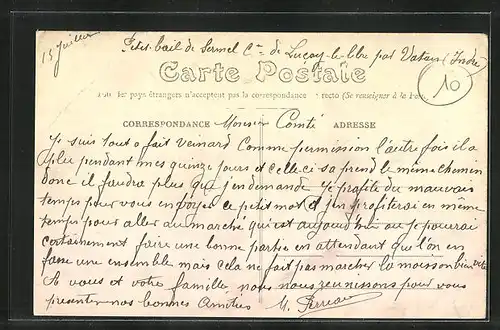 15 Juillet
Petit bail de Sermel Cne de Luçay-le-libre par Vatan (Indre)
Carte Postale
10
les pays étrangers n'acceptent pas la correspondance au recto (Se renseigner à la Poste)
CORRESPONDANCE ADRESSE
Monsieur Comté
Je suis tout a fait veinard comme permission l'autre fois il a
plu pendant mes quinze jours et celle ci sa prend le même chemin
donc il faudra plus que j'en demande Je profite du mauvais
temps pour vous envoyer ce petit mot et j'en profiterai en même
temps pour aller au marché qui est aujourd'hui ou je pourai
certainement faire une bonne partie en attendant qu'l'on en
fasse une ensemble mais cela ne fait pas marcher la moisson bien vite
A vous et votre famille, nous nous reunissons pour vous
presenter nos bonnes Amitiés M.